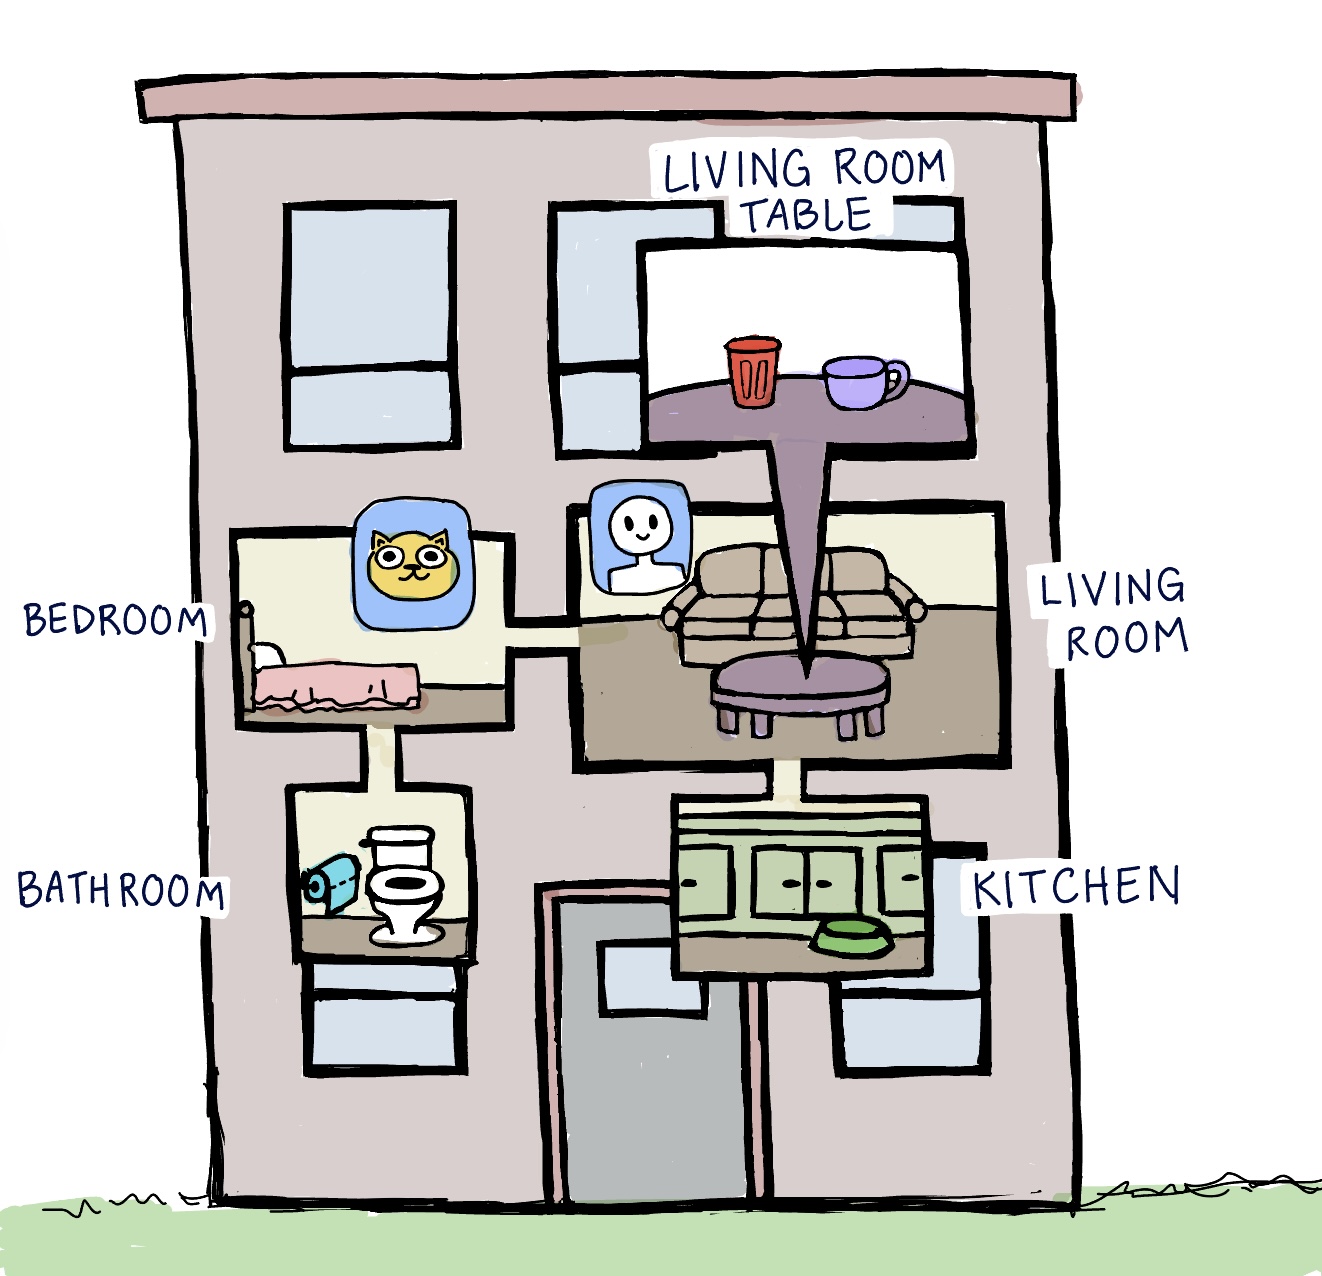 LIVING ROOM
TABLE
BEDROOM
LIVING
ROOM
BATHROOM
KITCHEN